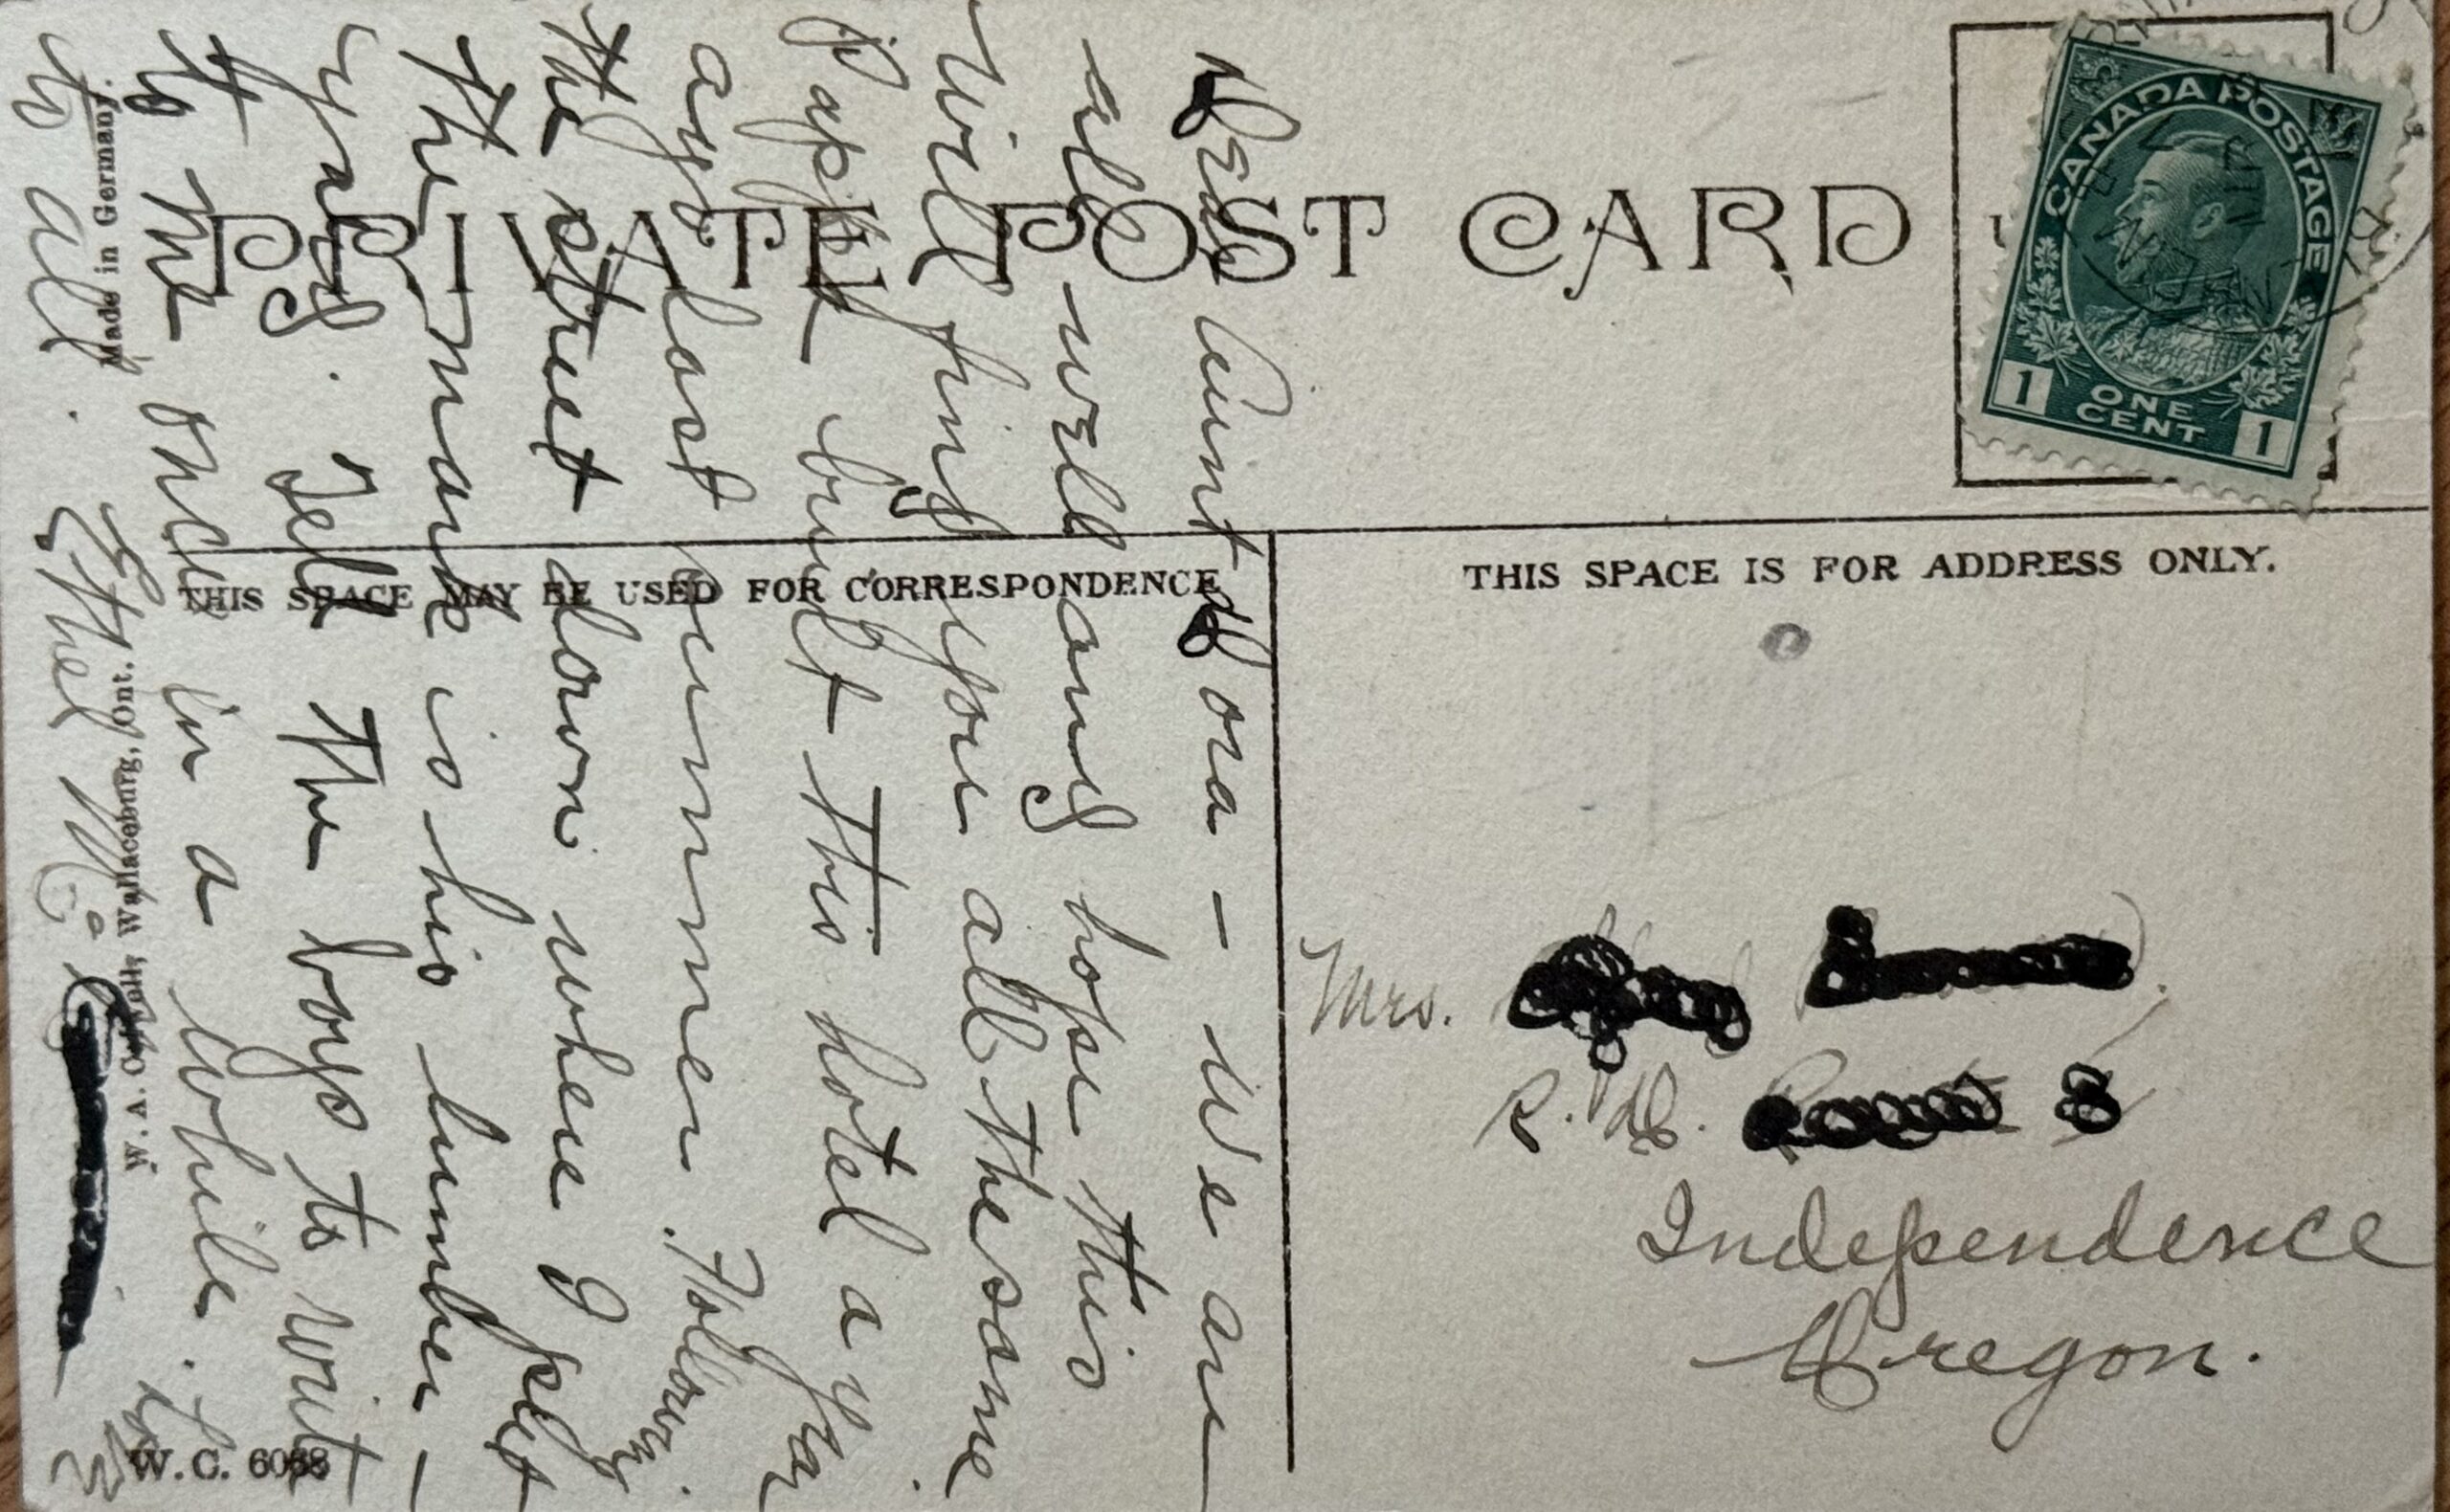 PRIVATE POST CARD
CANADA POSTAGE
1 ONE CENT 1
THIS SPACE MAY BE USED FOR CORRESPONDENCE
THIS SPACE IS FOR ADDRESS ONLY.
Dear Aunt Dora - We are
all well and hope this
will find you all the same.
Papa built this hotel a year
ago last summer. Following
the street down where I put
the mark is his lumber-
yard. Tell the boys to write
to me once in a while.
to all. Ethel M.
Mrs.
R. D.
Independence
Oregon.
Made in Germany.
Wallaceburg, Ont.
W. A.
W. C. 6068